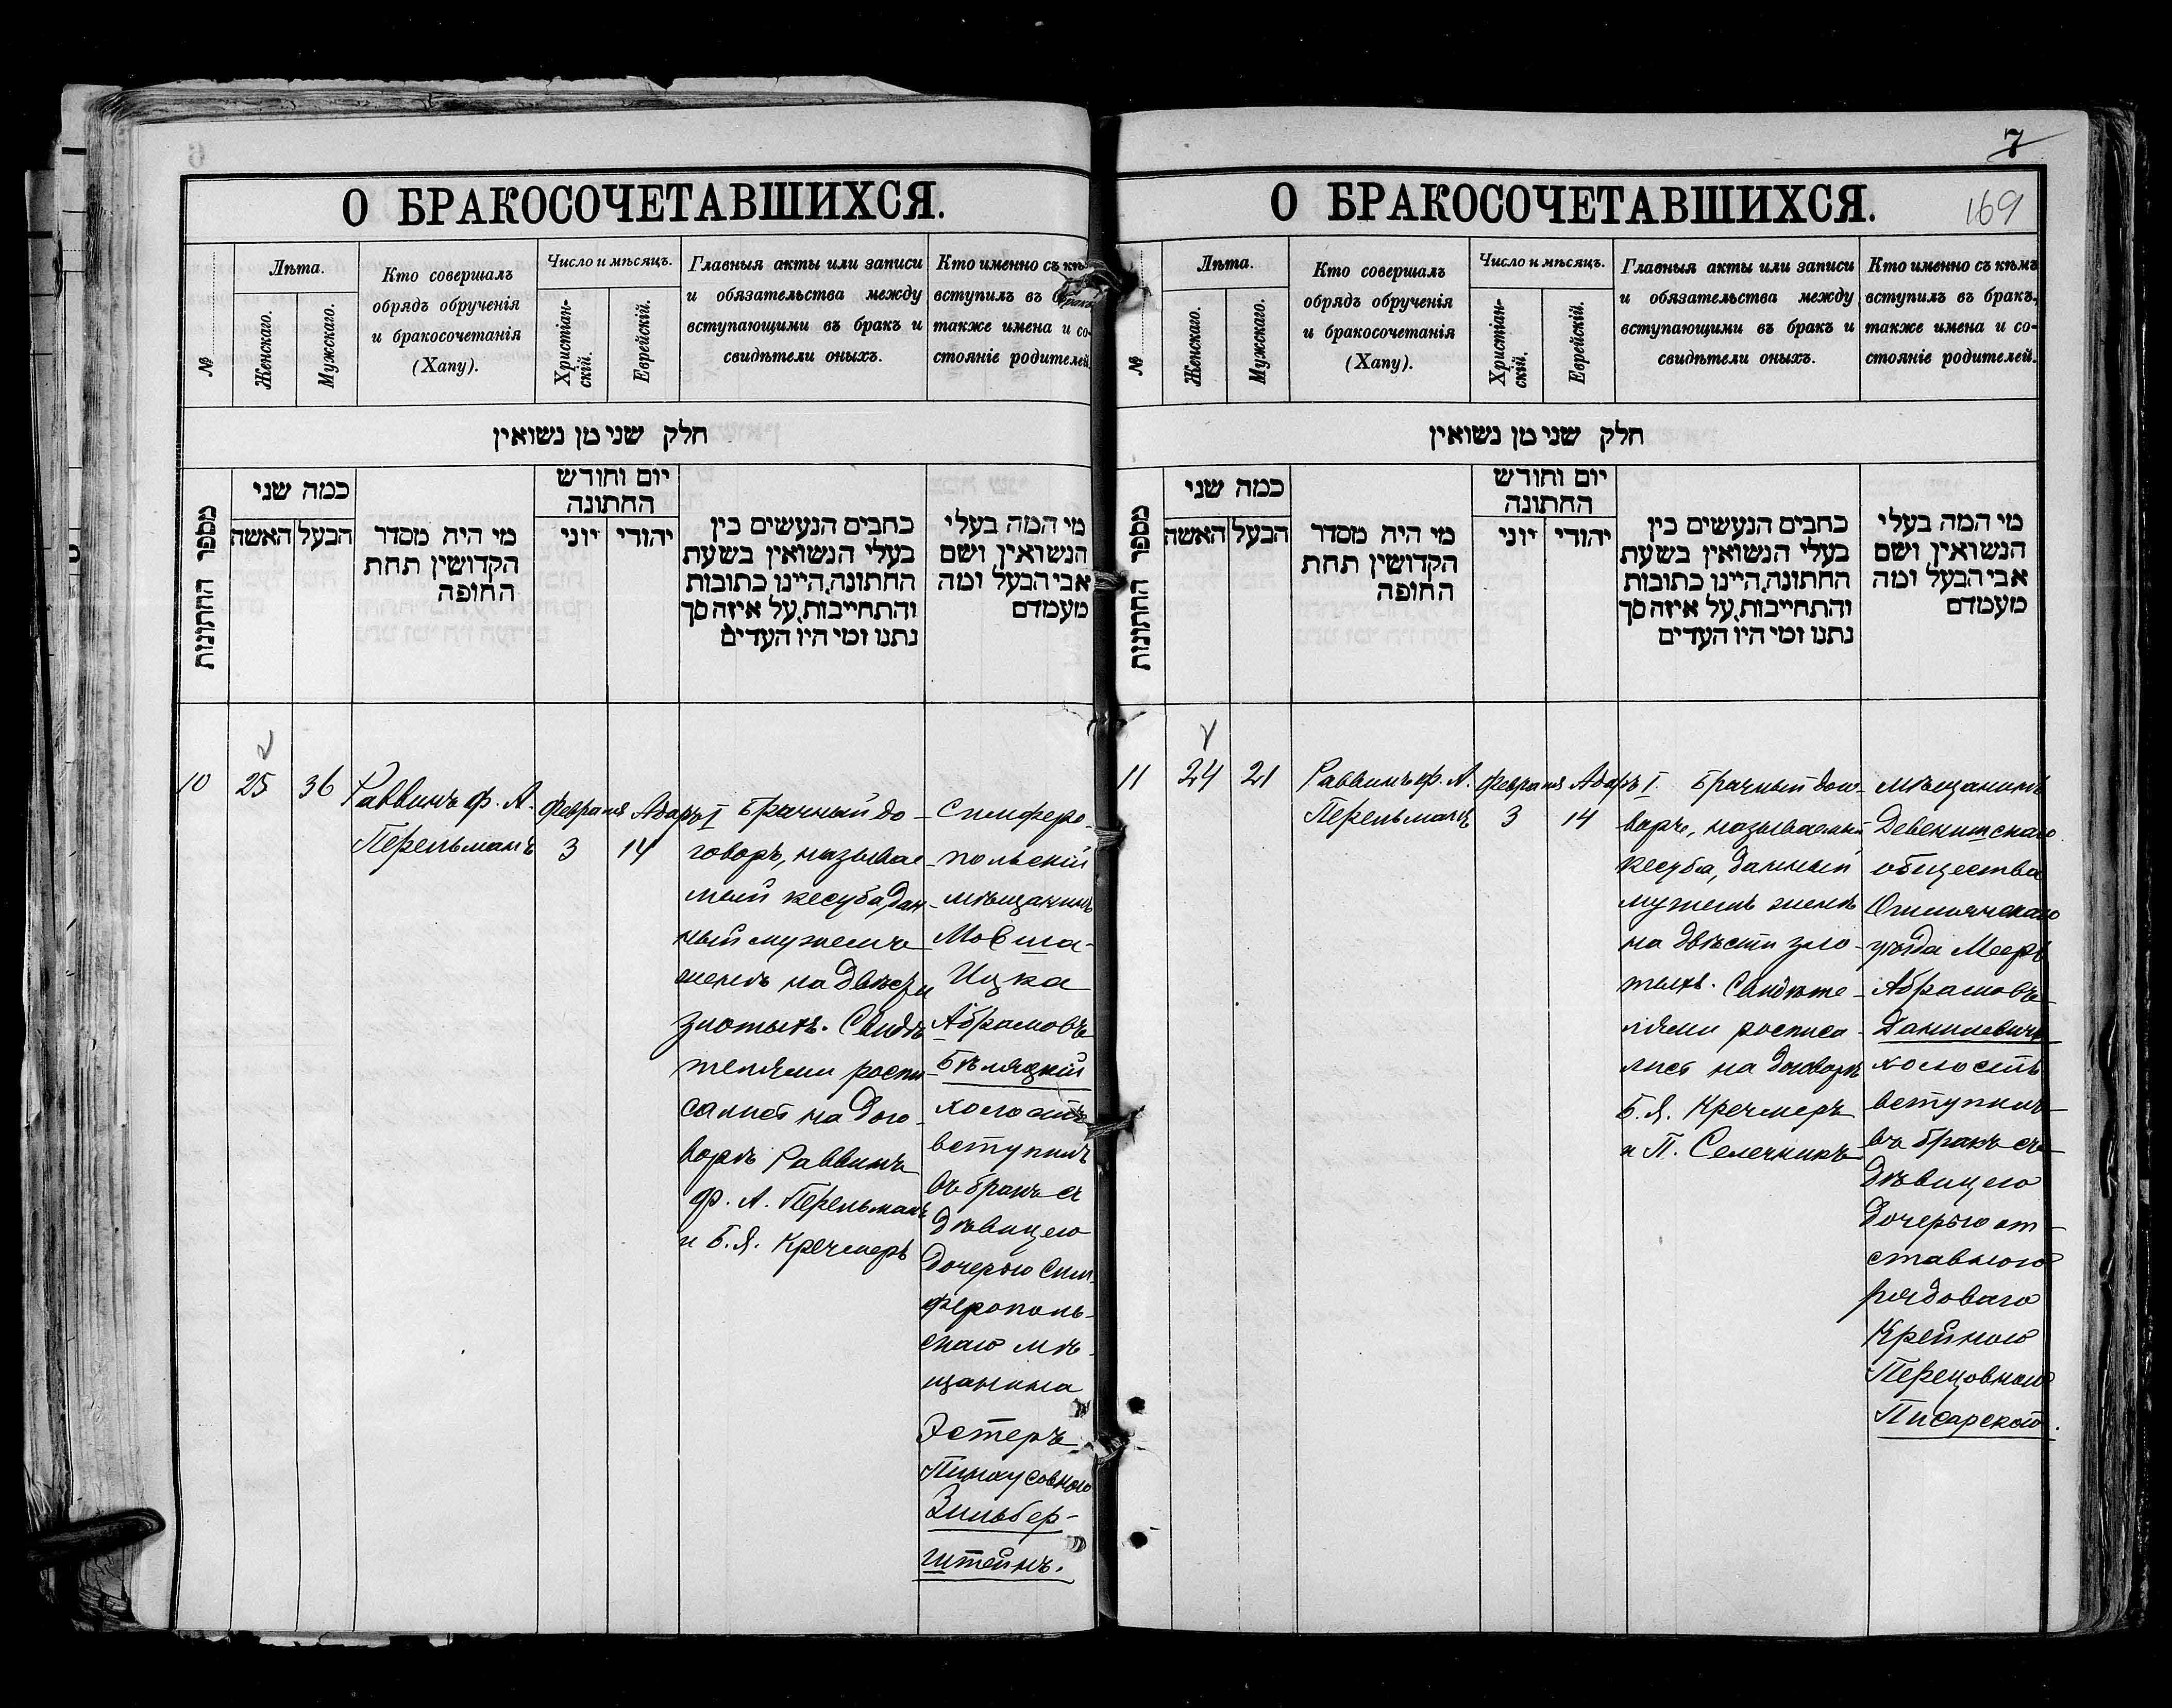 О БРАКОСОЧЕТАВШИХСЯ.
№
Лѣта.
Женскаго.
Мужскаго.
Кто совершалъ
обрядъ обрученія
и бракосочетанія
(Хапу).
Число и мѣсяцъ.
Христіан-
скій.
Еврейскій.
Главныя акты или записи
и обязательства между
вступающими въ бракъ и
свидѣтели оныхъ.
Кто именно съ кѣмъ
вступилъ въ бракъ
также имена и со-
стояніе родителей
חלק שני מן נשואין
מספר החתונות
כמה שני
האשה
הבעל
מי היה מסדר
הקדושין תחת
החופה
יום וחודש
החתונה
יוני
יהודי
כתבים הנעשים בין
בעלי הנשואין בשעת
החתונה, היינו כתובות
והתחייבות, על איזה סך
נתנו ומי היו העדים
מי המה בעלי
הנשואין ושם
אבי הבעל ומה
מעמדם
10
25
36
Раввинъ Ф. А.
Перельманъ
Февраля
3
Адаръ I
14
Брачный до-
говоръ, называе-
мый кесуба, дан-
ный мужемъ
женѣ на двѣсти
злотыхъ. Свидѣ-
телями распи-
сались на дого-
ворѣ Раввинъ
Ф. А. Перельманъ
и Б. Я. Кречмеръ
Симферо-
польскій
мѣщанинъ
Мовша-
Ицка
Абрамовъ
Бѣляцкій
холостъ
вступилъ
въ бракъ съ
дѣвицею
дочерью Сим-
ферополь-
скаго мѣ-
щанина
Эстеръ
Пинхусовною
Зильбер-
штейнъ.
7
О БРАКОСОЧЕТАВШИХСЯ.
169
№
Лѣта.
Женскаго.
Мужскаго.
Кто совершалъ
обрядъ обрученія
и бракосочетанія
(Хапу).
Число и мѣсяцъ.
Христіан-
скій.
Еврейскій.
Главныя акты или записи
и обязательства между
вступающими въ бракъ и
свидѣтели оныхъ.
Кто именно съ кѣмъ
вступилъ въ бракъ,
также имена и со-
стояніе родителей.
חלק שני מן נשואין
מספר החתונות
כמה שני
האשה
הבעל
מי היה מסדר
הקדושין תחת
החופה
יום וחודש
החתונה
יוני
יהודי
כתבים הנעשים בין
בעלי הנשואין בשעת
החתונה, היינו כתובות
והתחייבות, על איזה סך
נתנו ומי היו העדים
מי המה בעלי
הנשואין ושם
אבי הבעל ומה
מעמדם
11
24
21
Раввинъ Ф. А.
Перельманъ
Февраля
3
Адаръ I.
14
Брачный дого-
воръ, называемый
кесуба, данный
мужемъ женѣ
на двѣсти зло-
тыхъ. Свидѣте-
лями росписа-
лись на договорѣ
Б. Я. Кречмеръ
и П. Селечникъ
Мѣщанинъ
Девенишскаго
общества
Ошмянскаго
уѣзда Мееръ
Абрамовъ
Данилевичъ
холостъ
вступилъ
въ бракъ съ
дѣвицею
дочерью от-
ставного
рядоваго
Крейною
Перецовною
Писарскою.